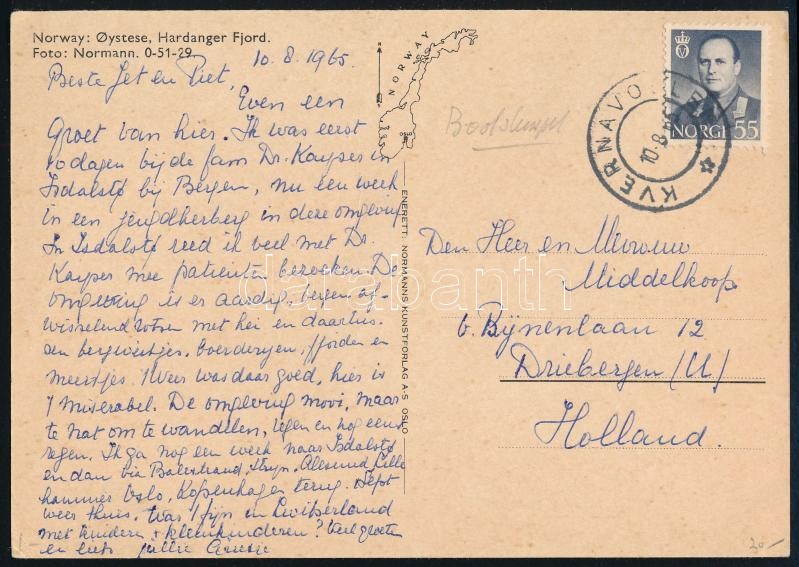 Norway: Øystese, Hardanger Fjord.
Foto: Normann. 0-51-29
10.8.1965.
Beste Jet en Piet,
Even een
groet van hier. Ik was eerst
10 dagen bij de fam Dr. Kayser in
Isdalstø bij Bergen, nu een week
in een jeugdherberg in deze omgeving
In Isdalstø reed ik veel met Dr.
Kayser mee patienten bezoeken. De
omgeving is er aardig, bergen af-
wisselend rotsen met hei en daartus-
sen bergweitjes, boerderijen, fjorden en
meertjes. 't Weer was daar goed, hier is
't miserabel. De omgeving mooi, maar
te nat om te wandelen, regen en nog eens
regen. Ik ga nog een week naar Isdalstø
en dan via Balestrand, Stryn, Alesund, Lille
hammer Oslo, Kopenhagen terug. Sept
weer thuis. Was 't fijn in Zwitserland
met kinderen + kleinkinderen? Veel groeten
en liefs jullie
NORWAY
OSLO
ENERETT: NORMANNS KUNSTFORLAG A.S OSLO
Bootstempel
NORGE 55
KVERNAVO
10.8
Den Heer en Mevrouw
Middelkoop
v. Rijnenlaan 12
Driebergen (U)
Holland.
darabanth
20.-